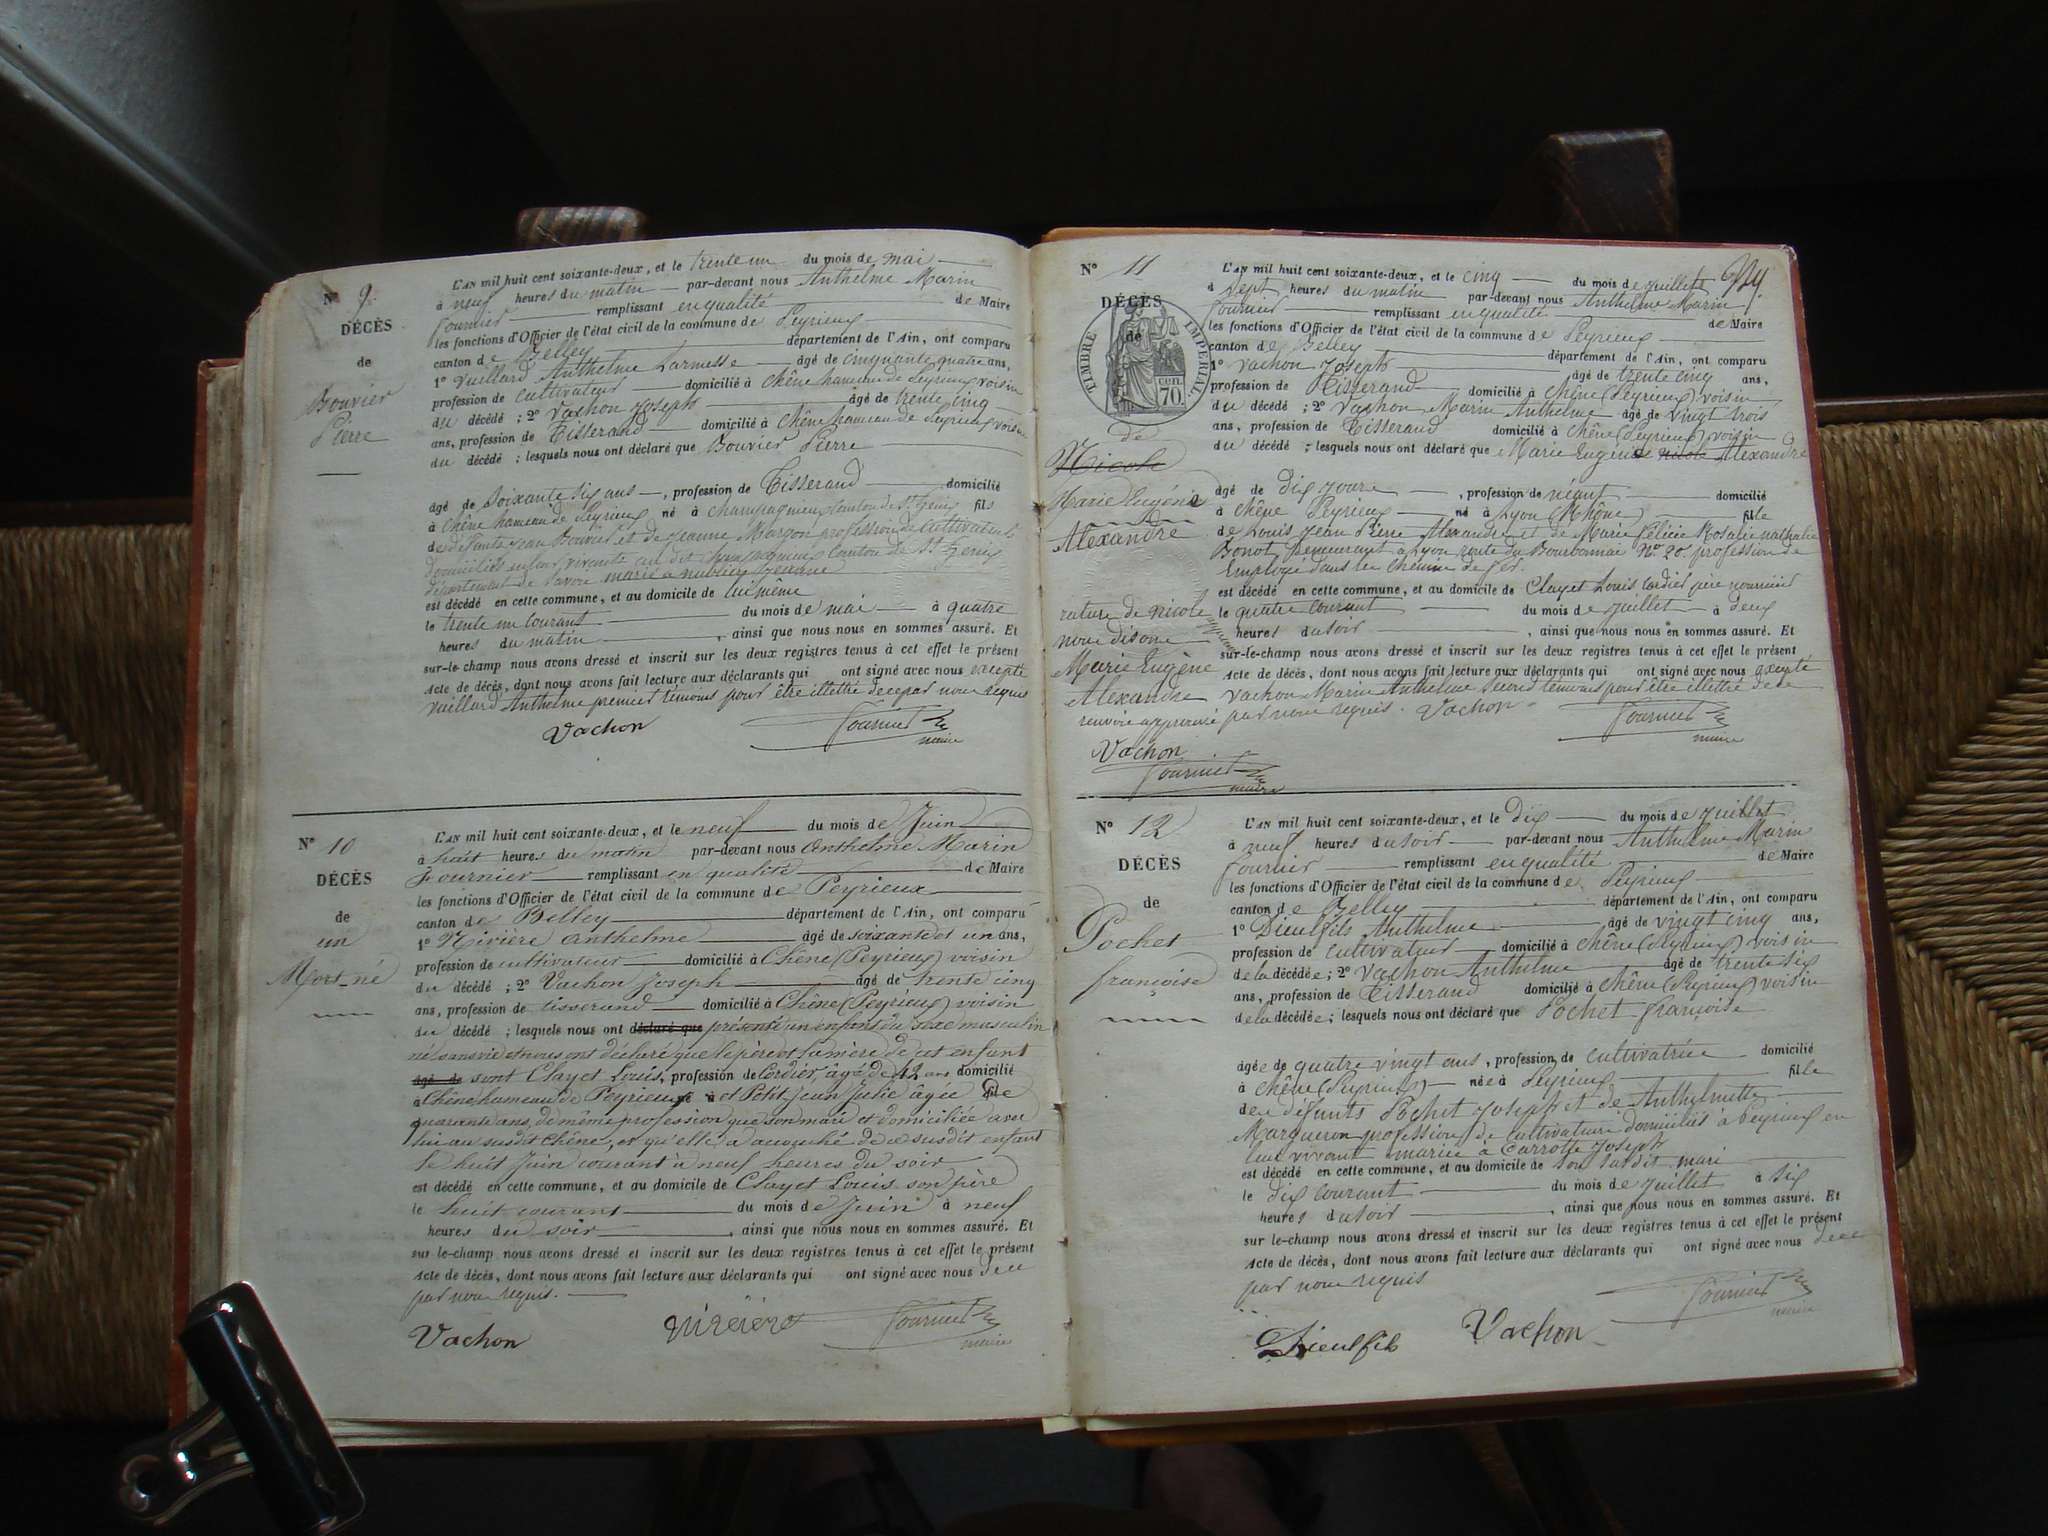 N° 9
DÉCÈS
de
Bouvier
Pierre
L'AN mil huit cent soixante-deux, et le trente un du mois de mai
à neuf heures du matin par-devant nous Anthelme Marin
Fournier remplissant en qualité de Maire
les fonctions d'Officier de l'état civil de la commune de Peyrieux
canton de Belley département de l'Ain, ont comparu
1° Vuillard Anthelme Larmesse âgé de cinquante quatre ans,
profession de cultivateur domicilié à Chêne hameau de Peyrieux voisin
du décédé ; 2° Vachon Joseph âgé de trente cinq
ans, profession de Tisserand domicilié à Chêne hameau de Peyrieux voisin
du décédé ; lesquels nous ont déclaré que Bouvier Pierre
âgé de soixante six ans, profession de Tisserand domicilié
à Chêne hameau de Peyrieux né à Champagneux canton de St Genix fils
de défunts Jean Bouvier et de Jeanne Marçon profession de cultivateurs
domiciliés en leur vivants au dit Champagneux Canton de St Genix
département de Savoie marié à
est décédé en cette commune, et au domicile de lui même
le trente un courant du mois de mai à quatre
heures du matin, ainsi que nous nous en sommes assuré. Et
sur-le-champ nous avons dressé et inscrit sur les deux registres tenus à cet effet le présent
Acte de décès, dont nous avons fait lecture aux déclarants qui ont signé avec nous excepté
Vuillard Anthelme premier témoins pour être illettré de ce par nous requis
Vachon Fournier
maire
N° 10
DÉCÈS
de
un
Mort-né
L'AN mil huit cent soixante-deux, et le neuf du mois de Juin
à huit heures du matin par-devant nous Anthelme Marin
Fournier remplissant en qualité de Maire
les fonctions d'Officier de l'état civil de la commune de Peyrieux
canton de Belley département de l'Ain, ont comparu
1° Nivière Anthelme âgé de soixante et un ans,
profession de cultivateur domicilié à Chêne (Peyrieux) voisin
du décédé ; 2° Vachon Joseph âgé de trente cinq
ans, profession de tisserand domicilié à Chêne (Peyrieux) voisin
du décédé ; lesquels nous ont déclaré que présenté un enfant du sexe masculin
né sans vie et nous ont déclaré que le père et la mère de cet enfant
âgé de sont Clayet Louis, profession de Cordier, âgé de 42 ans domicilié
à Chêne hameau de Peyrieux né à et Petit-Jean Julie âgée fil de
quarante ans, de même profession que son mari et domiciliée avec
lui au susdit Chêne, et qu'elle a accouché de ce susdit enfant
le huit Juin courant à neuf heures du soir
est décédé en cette commune, et au domicile de Clayet Louis son père
le huit courant du mois de Juin à neuf
heures du soir, ainsi que nous nous en sommes assuré. Et
sur-le-champ nous avons dressé et inscrit sur les deux registres tenus à cet effet le présent
Acte de décès, dont nous avons fait lecture aux déclarants qui ont signé avec nous de ce
par nous requis.
Vachon Nivière Fournier
maire
N° 11
DÉCÈS
de
TIMBRE IMPÉRIAL
70 cen.
de
Nicole
Marie Eugénie
Alexandre
rature de nicole approuvée
nous disons
Marie Eugène
Alexandre
renvoie approuvé
Vachon
Fournier
maire
L'AN mil huit cent soixante-deux, et le cinq du mois de juillet
à sept heures du matin par-devant nous Anthelme Marin
Fournier remplissant en qualité de Maire
les fonctions d'Officier de l'état civil de la commune de Peyrieux
canton de Belley département de l'Ain, ont comparu
1° Vachon Joseph âgé de trente cinq ans,
profession de Tisserand domicilié à Chêne (Peyrieux) voisin
du décédé ; 2° Vachon Marin Anthelme âgé de vingt trois
ans, profession de Tisserand domicilié à Chêne (Peyrieux) voisin
du décédé ; lesquels nous ont déclaré que Marie Eugénie nicole Alexandre
âgé de dix jours, profession de néant domicilié
à Chêne Peyrieux né à Lyon (Rhône) fille
de Louis Jean Pierre Alexandre et de Marie Félicie Rosalie nathalie
Bonot demeurant à Lyon route du Bourbonnai N° 20 profession de
Employé dans les chemins de fer.
est décédé en cette commune, et au domicile de Clayet Louis cordier père nourricier
le quatre courant du mois de juillet à deux
heures du soir, ainsi que nous nous en sommes assuré. Et
sur-le-champ nous avons dressé et inscrit sur les deux registres tenus à cet effet le présent
Acte de décès, dont nous avons fait lecture aux déclarants qui ont signé avec nous excepté
Vachon Marin Anthelme second témoins pour être illettré de ce
par nous requis. Vachon Fournier
maire
N° 12
DÉCÈS
de
Pochet
françoise
L'AN mil huit cent soixante-deux, et le Dix du mois de juillet
à neuf heures du soir par-devant nous Anthelme Marin
Fournier remplissant en qualité de Maire
les fonctions d'Officier de l'état civil de la commune de Peyrieux
canton de Belley département de l'Ain, ont comparu
1° Dieulfils Anthelme âgé de vingt cinq ans,
profession de cultivateur domicilié à Chêne (Peyrieux) voisin
de la décédée ; 2° Vachon Anthelme âgé de trente six
ans, profession de Tisserand domicilié à Chêne (Peyrieux) voisin
de la décédée ; lesquels nous ont déclaré que Pochet françoise
âgée de quatre vingt ans, profession de cultivatrice domicilié
à Chêne (Peyrieux) née à Peyrieux fille
de défunts Pochet Joseph et de Anthelmette
Margueron profession de cultivateurs domiciliés à Peyrieux en
leur vivant mariée à Carrotte Joseph
est décédé en cette commune, et au domicile de son susdit mari
le dix courant du mois de juillet à six
heures du soir, ainsi que nous nous en sommes assuré. Et
sur-le-champ nous avons dressé et inscrit sur les deux registres tenus à cet effet le présent
Acte de décès, dont nous avons fait lecture aux déclarants qui ont signé avec nous de ce
par nous requis
Dieulfils Vachon Fournier
maire